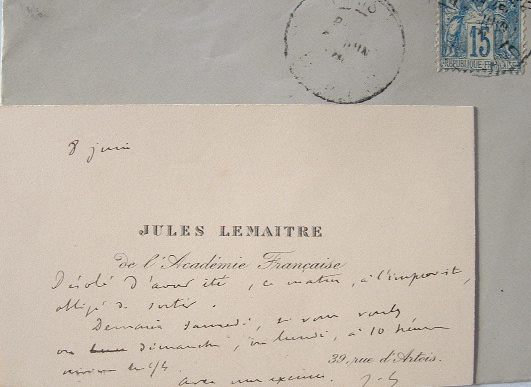 15
REPUBLIQUE FRANÇAISE
8 juin
JULES LEMAITRE
de l'Académie Française
Désolé d'avoir été, ce matin, à l'improviste,
obligé de sortir.
Demain samedi, si vous voulez
ou dimanche, ou lundi, à 10 heures
39, rue d'Artois.
avec mes excuses. J. L